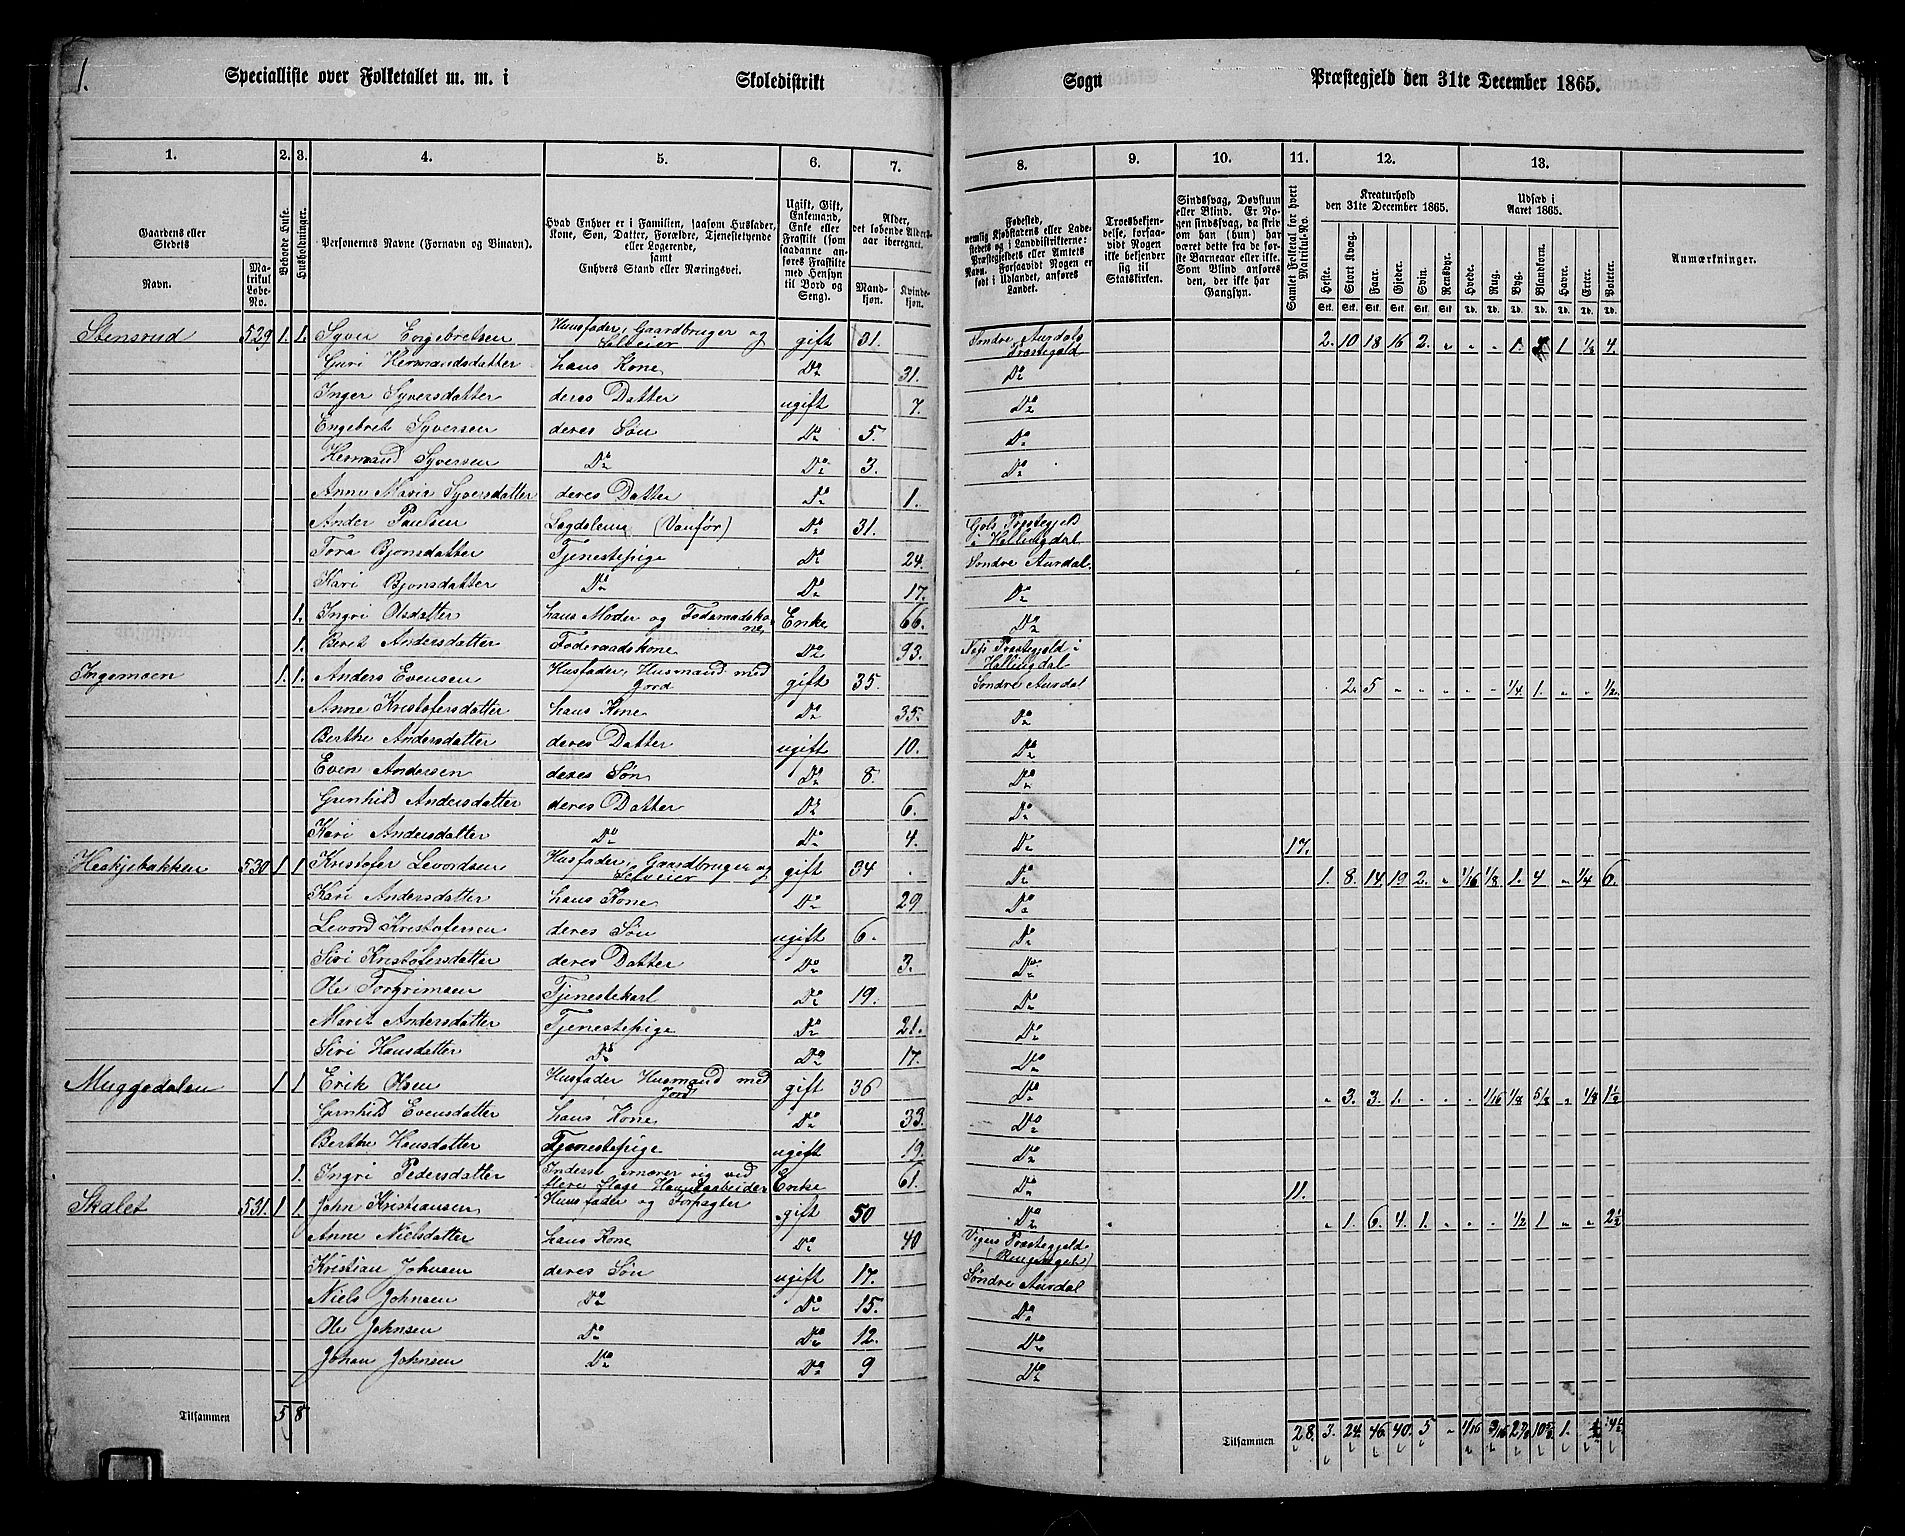 1.
Specialliste over Folketallet m. m. i Skoledistrikt Sogn Præstegjeld den 31te December 1865.
1. 2. 3. 4. 5. 6. 7. 8. 9. 10. 11. 12. 13.
Gaardens eller Stedets
Navn.
Matrikul Løbe-No.
Beboede Huse.
Husholdninger.
Personernes Navne (Fornavn og Binavn).
Hvad Enhver er i Familien, saasom Husfader, Kone, Søn, Datter, Forældre, Tjenestetyende eller Logerende, samt Enhvers Stand eller Næringsvei.
Ugift, Gift, Enkemand, Enke eller Fraskilt (som saadanne anføres Fraskilte med Hensyn til Bord og Seng).
Alder, det løbende Alders-aar iberegnet.
Mandkjøn.
Kvindekjøn.
Fødested, nemlig Kjøbstadens eller Ladestedets og i Landdistrikterne: Præstegjeldets eller Amtets Navn. Forsaavidt Nogen er født i Udlandet, anføres Landet.
Troesbekjendelse, forsaavidt Nogen ikke bekjender sig til Statskirken.
Sindssvag, Døvstum eller Blind. Er Nogen sindssvag, da skrives om han (hun) har været dette fra de første Barneaar eller ikke. Som Blind anføres den, der ikke har Gangsyn.
Samlet Folketal for hvert Matrikul-No.
Kreaturhold den 31te December 1865.
Heste. Stort Kvæg. Faar. Gjeder. Svin. Rensdyr.
Stk. Stk. Stk. Stk. Stk. Stk.
Udsæd i Aaret 1865.
Hvede. Rug. Byg. Blandkorn. Havre. Erter. Poteter.
Td. Td. Td. Td. Td. Td. Td.
Anmærkninger.
Stensrud 529 1. 1. Syver Engebretsen Huusfader, Gaardbruger og Selveier gift 31. Søndre Aurdals Præstegjeld 2. 10 18 16 2. " " . 1. 1 1/8 4.
Guri Hermandsdatter hans Kone Do 31. Do
Inger Syversdatter deres Datter ugift 7. Do
Engebret Syversen deres Søn Do 5. Do
Hermand Syversen Do Do 3. Do
Anne Marie Syversdatter deres Datter Do 1.
Ander Paulsen Lægdslem (Vanfør) Do 31. Gols Præstegjeld i Hallingdal
Tora Bjønsdatter Tjenestepige Do 24. Søndre Aurdal.
Kari Bjønsdatter Do Do 17. Do
1. Ingri Olsdatter hans Moder og Føderaadskone Enke 66. Do
1. Berit Andersdatter Føderaadskone Do 93. Næs Præstegjeld i Hallingdal
Ingemoen 1. 1. Anders Evensen Husfader, Husmand med Jord gift 35. Søndre Aurdal . 2. 5 " " " . " 1/4 1. " " 1/2.
Anne Kristofersdatter hans Kone Do 35. Do
Berthe Andersdatter deres Datter ugift 10. Do
Even Andersen deres Søn Do 8. Do
Gunhild Andersdatter deres Datter Do 6. Do
Kari Andersdatter Do Do 4. Do 17.
Haakjebakken 530 1 1 Kristofer Levordsen Husfader, Gaardbruger og Selveier gift 34 Do 1. 8. 14. 19 2. " 1/16 1/8 1. 4 " 1/4 6.
Kari Andersdatter hans Kone Do 29 Do
Levord Kristofersen deres Søn ugift 6. Do
Siri Kristofersdatter deres Datter Do 3. Do
Ole Torgrimsen Tjenestekarl Do 19. Do
Marit Andersdatter Tjenestepige Do 21. Do
Siri Hansdatter Do Do 17. Do
Muggedalen 1 1 Erik Olsen Husfader Husmand med Jord gift 36 Do " 3. 3. 1. . . . 1/16 1/8 5/8 " 1/8 1 1/2
Gunhild Evensdatter hans Kone Do 33. Do
Berthe Hansdatter Tjenestepige ugift 19. Do
1. Ingri Pedersdatter Inderst ernærer sig ved flere Slags Haandarbeider Enke 61. Do 11.
Skalet 531. 1 1. John Kristiansen Huusfader og Forpagter gift 50 Do " 1. 6. 4. 1. " . . 1/2 1 " " 2 1/2
Anne Nielsdatter hans Kone Do 40 Vigers Præstegjeld (Ringeriget)
Kristian Johnsen deres Søn ugift 17. Søndre Aurdal
Niels Johnsen Do Do 15. Do
Ole Johnsen Do Do 12. Do
Johan Johnsen Do Do 9 Do
Tilsammen 5 8
Tilsammen 28. 3. 24. 46. 40. 5 " 1/16 3/16 1.